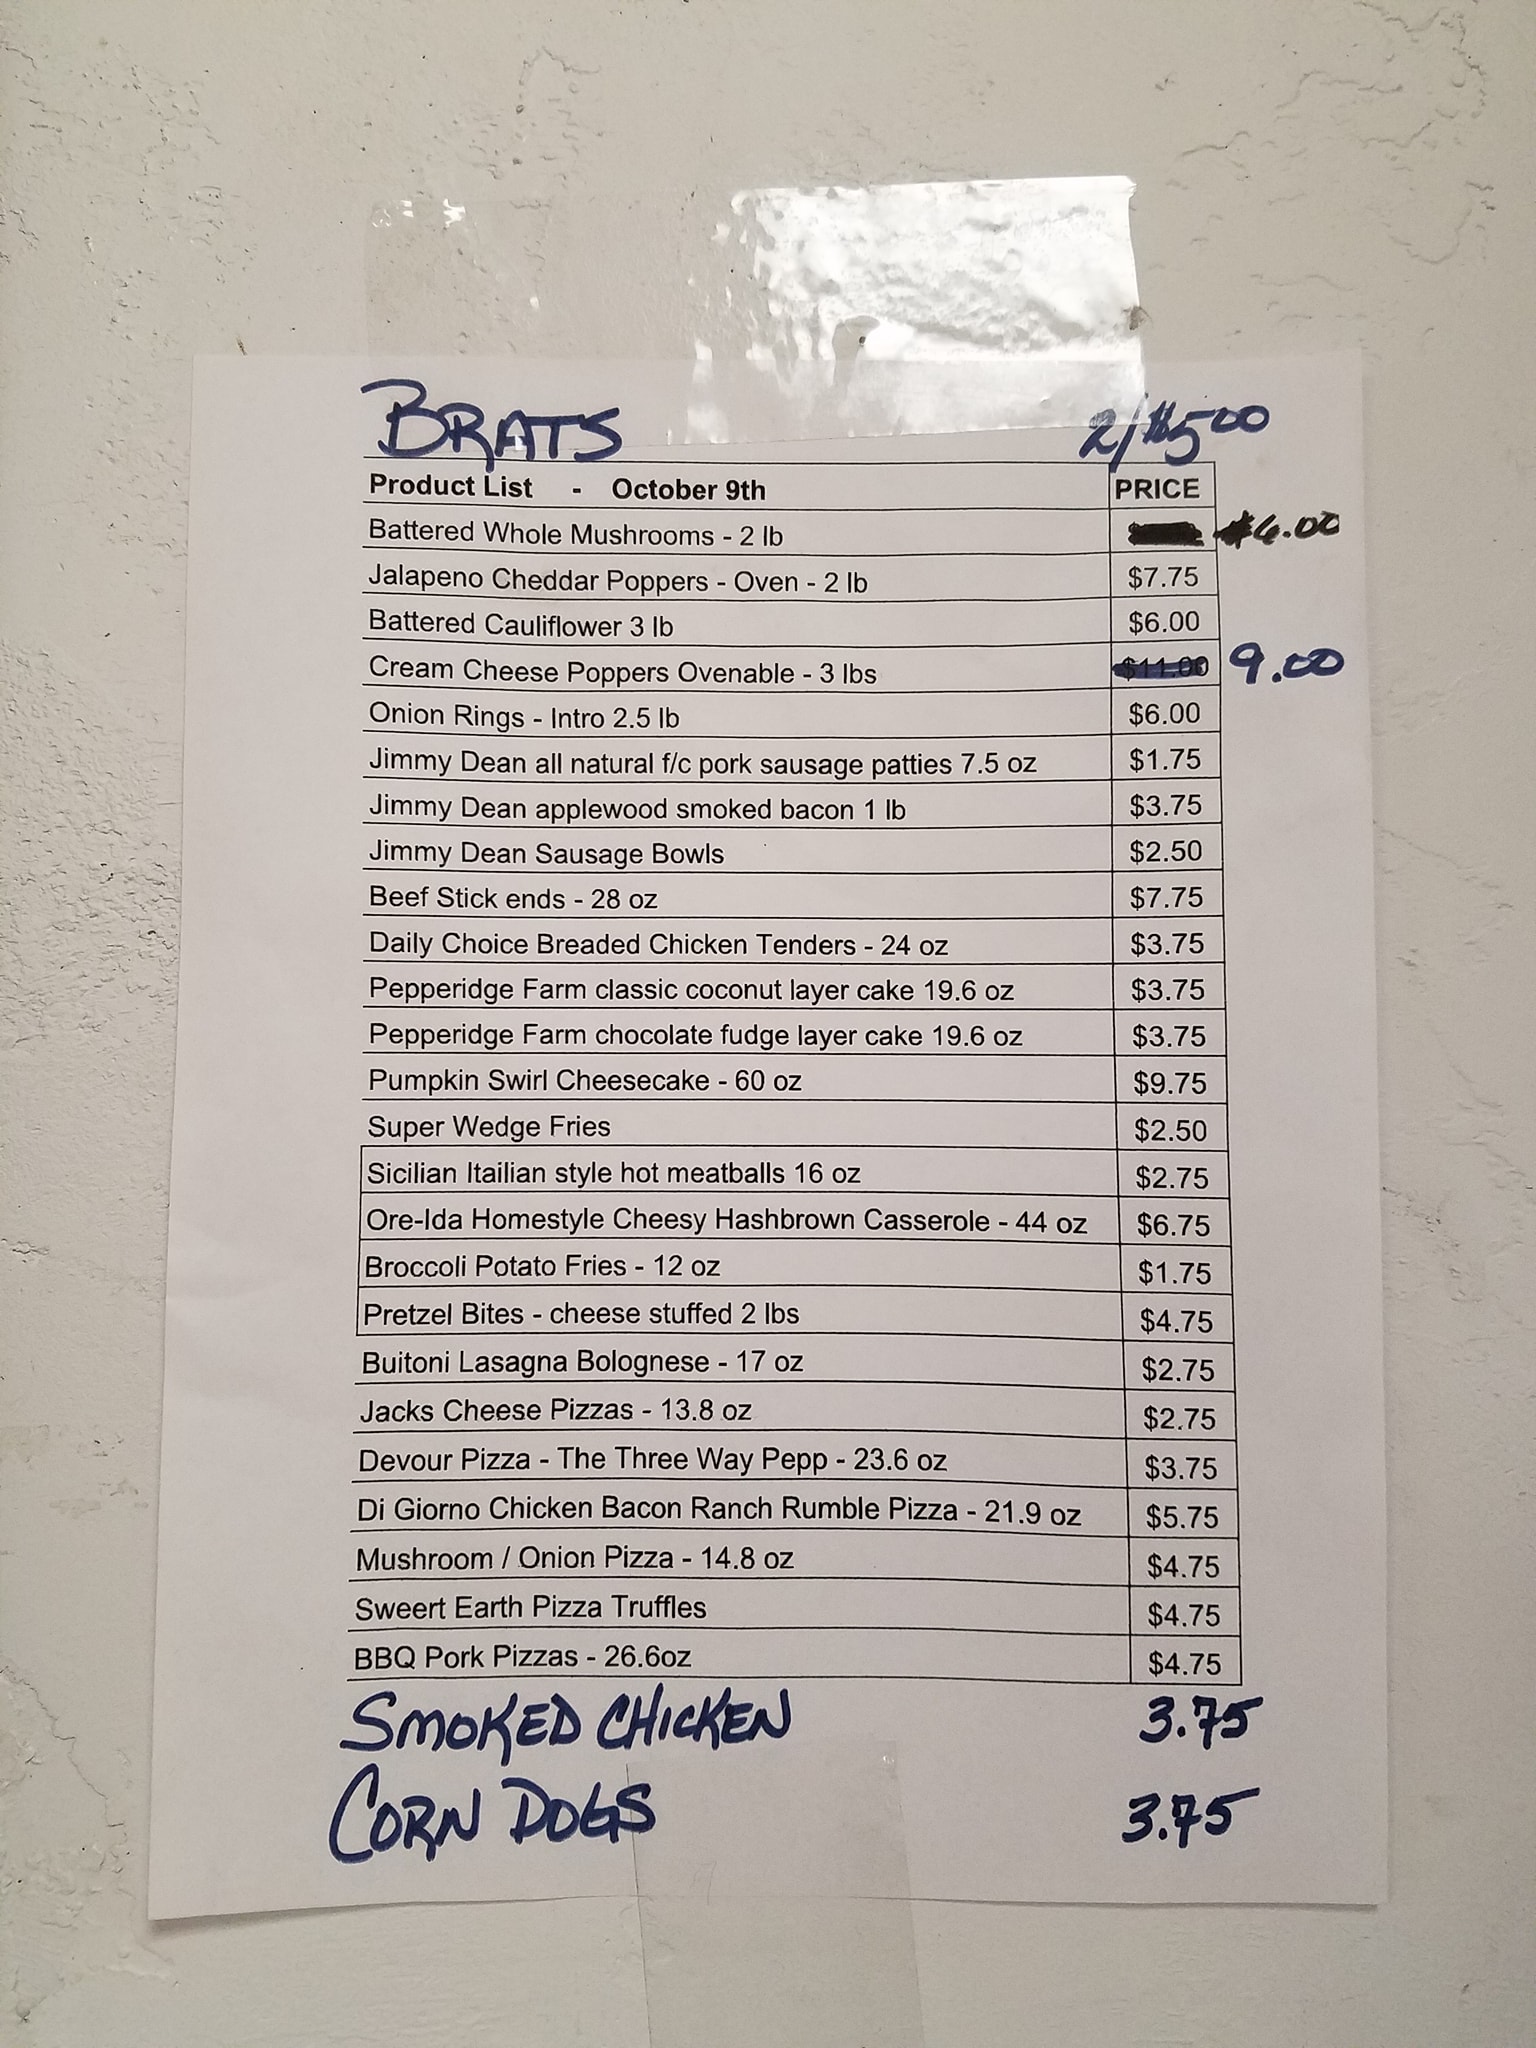 BRATS 2/$5.00
Product List - October 9th PRICE
Battered Whole Mushrooms - 2 lb $6.00
Jalapeno Cheddar Poppers - Oven - 2 lb $7.75
Battered Cauliflower 3 lb $6.00
Cream Cheese Poppers Ovenable - 3 lbs $11.00 9.00
Onion Rings - Intro 2.5 lb $6.00
Jimmy Dean all natural f/c pork sausage patties 7.5 oz $1.75
Jimmy Dean applewood smoked bacon 1 lb $3.75
Jimmy Dean Sausage Bowls $2.50
Beef Stick ends - 28 oz $7.75
Daily Choice Breaded Chicken Tenders - 24 oz $3.75
Pepperidge Farm classic coconut layer cake 19.6 oz $3.75
Pepperidge Farm chocolate fudge layer cake 19.6 oz $3.75
Pumpkin Swirl Cheesecake - 60 oz $9.75
Super Wedge Fries $2.50
Sicilian Itailian style hot meatballs 16 oz $2.75
Ore-Ida Homestyle Cheesy Hashbrown Casserole - 44 oz $6.75
Broccoli Potato Fries - 12 oz $1.75
Pretzel Bites - cheese stuffed 2 lbs $4.75
Buitoni Lasagna Bolognese - 17 oz $2.75
Jacks Cheese Pizzas - 13.8 oz $2.75
Devour Pizza - The Three Way Pepp - 23.6 oz $3.75
Di Giorno Chicken Bacon Ranch Rumble Pizza - 21.9 oz $5.75
Mushroom / Onion Pizza - 14.8 oz $4.75
Sweert Earth Pizza Truffles $4.75
BBQ Pork Pizzas - 26.6oz $4.75
SMOKED CHICKEN 3.75
CORN DOGS 3.75